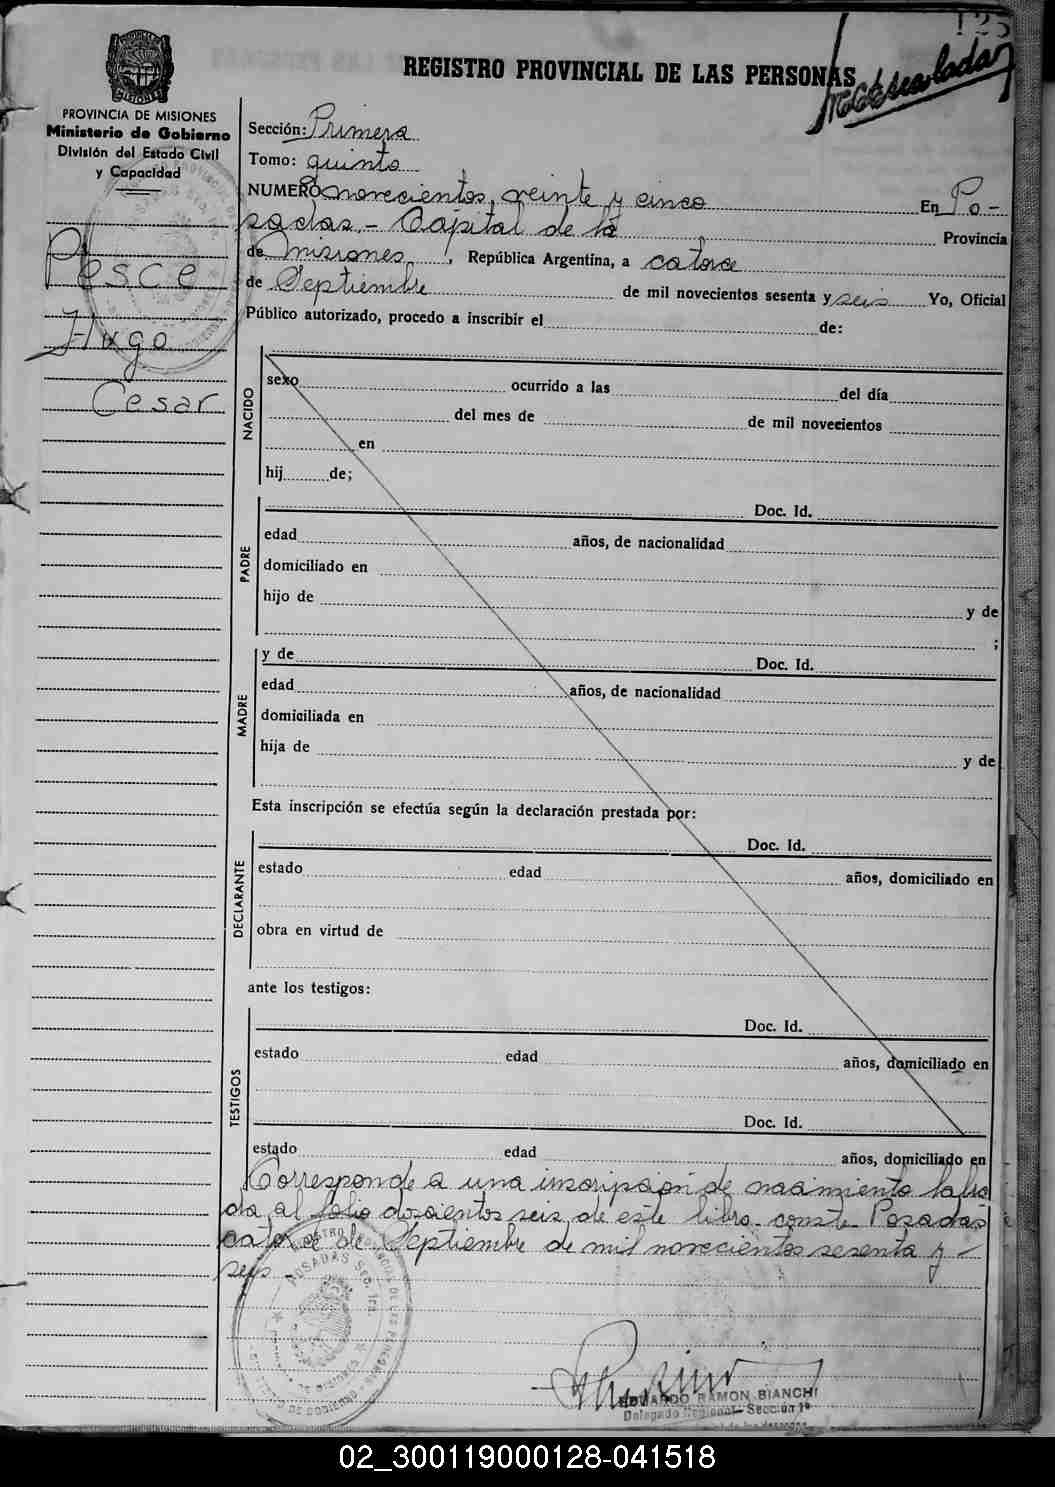 125
REGISTRO PROVINCIAL DE LAS PERSONAS
PROVINCIA DE MISIONES
Ministerio de Gobierno
División del Estado Civil
y Capacidad
Pesce
Hugo
Cesar
Sección: Primera
Tomo: quinto
NUMERO novecientos veinte y cinco En Po-
sadas - Capital de la Provincia
de Misiones, República Argentina, a catorce
de Septiembre de mil novecientos sesenta y seis Yo, Oficial
Público autorizado, procedo a inscribir el de:
NACIDO
sexo ocurrido a las del día
del mes de de mil novecientos
en
hij de;
PADRE
Doc. Id.
edad años, de nacionalidad
domiciliado en
hijo de y de
;
MADRE
y de Doc. Id.
edad años, de nacionalidad
domiciliada en
hija de y de
Esta inscripción se efectúa según la declaración prestada por:
DECLARANTE
Doc. Id.
estado edad años, domiciliado en
obra en virtud de
ante los testigos:
TESTIGOS
Doc. Id.
estado edad años, domiciliado en
Doc. Id.
estado edad años, domiciliado en
Corresponde a una inscripción de nacimiento labra
da al folio doscientos seis de este libro. conste Posadas
catorce de Septiembre de mil novecientos sesenta y -
seis
POSADAS Sec. 1ra.
EDUARDO RAMON BIANCHI
Delegado Regional - Sección 1ª
02_300119000128-041518